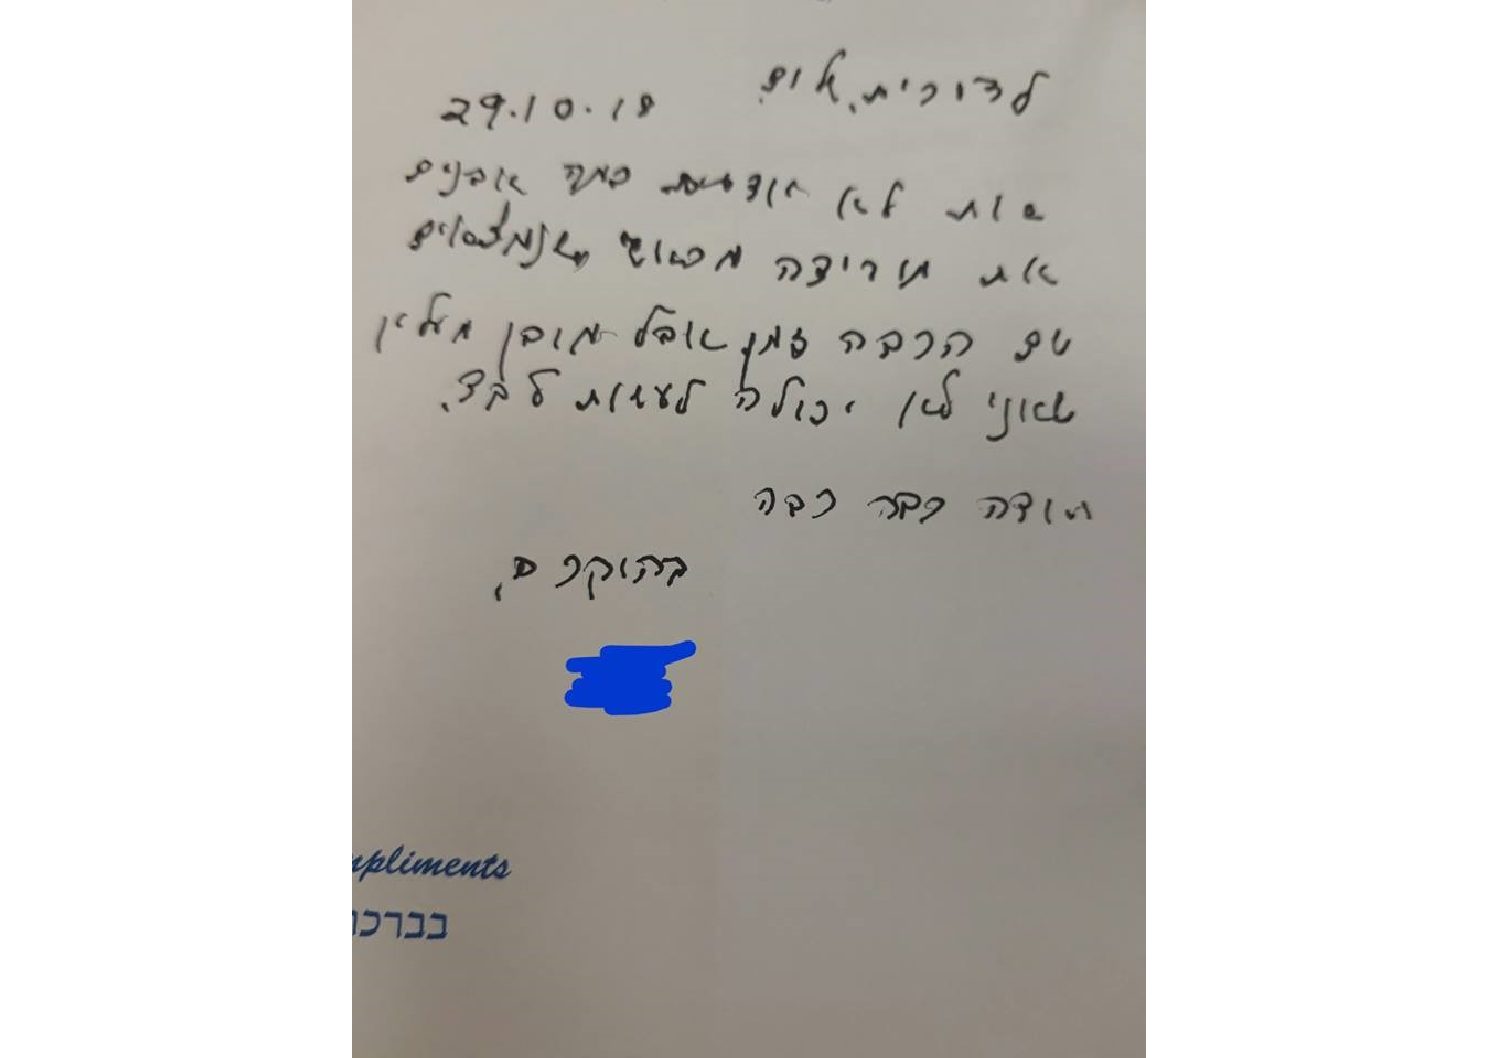 לדורית, שלום.
29.10.18
את לא יודעת כמה אבנים
את מורידה מראשי שנמצאים
שם הרבה זמן אבל מובן מאליו
שאני לא יכולה לעשות לבד.
תודה רבה רבה
בהוקרה,
mpliments
בברכו